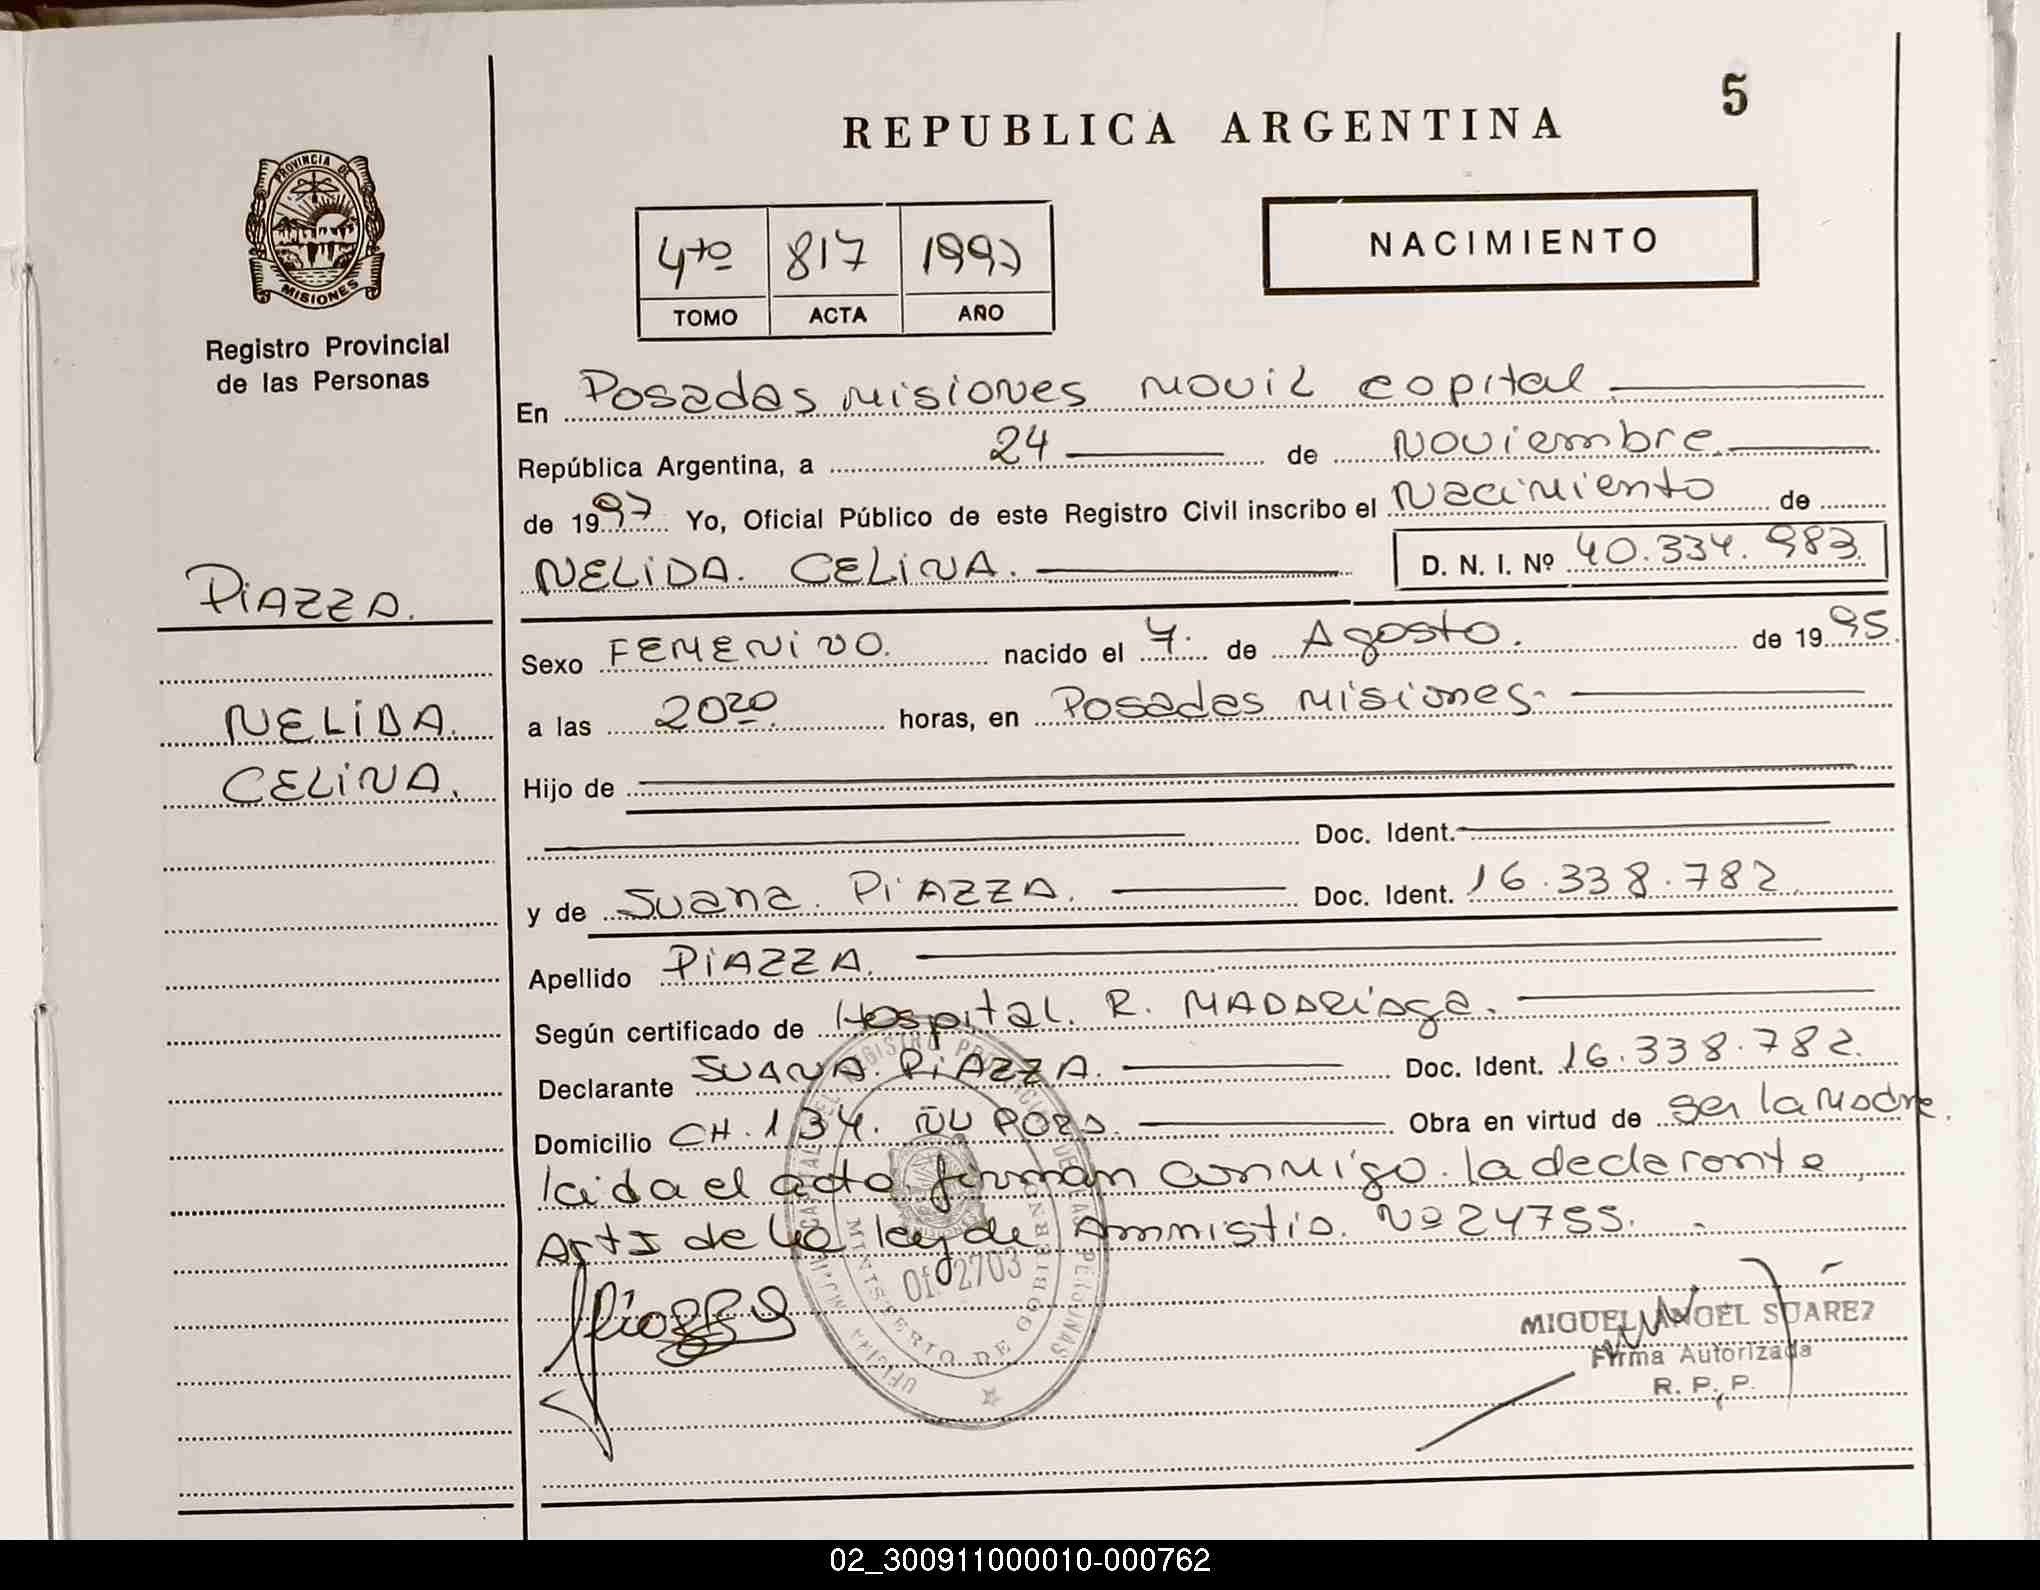 5
REPUBLICA ARGENTINA
PROVINCIA DE
MISIONES
Registro Provincial
de las Personas
4to 817 1997
TOMO ACTA AÑO
NACIMIENTO
En Posadas Misiones Movil Capital
República Argentina, a 24 de Noviembre
de 1997 Yo, Oficial Público de este Registro Civil inscribo el Nacimiento de
NELIDA. CELINA. D. N. I. Nº 40.334.983.
PIAZZA.
Sexo FEMENINO. nacido el 4. de Agosto. de 1995.
NELIDA.
a las 20 20 horas, en Posadas Misiones.
CELINA.
Hijo de
Doc. Ident.
y de Juana. PIAZZA. Doc. Ident. 16.338.782
Apellido PIAZZA.
Según certificado de Hospital. R. MADARiaga.
Declarante JUANA. PIAZZA. Doc. Ident. 16.338.782.
Domicilio CH. 134. ÑU PORA. Obra en virtud de ser la Madre.
leida el acta firman conmigo la declarante
Art 5 de la ley de Amnistia. Nº 24755.
MINISTERIO DE GOBIERNO
Of 02703
MIGUEL ANGEL SUAREZ
Firma Autorizada
R. P. P.
02_300911000010-000762